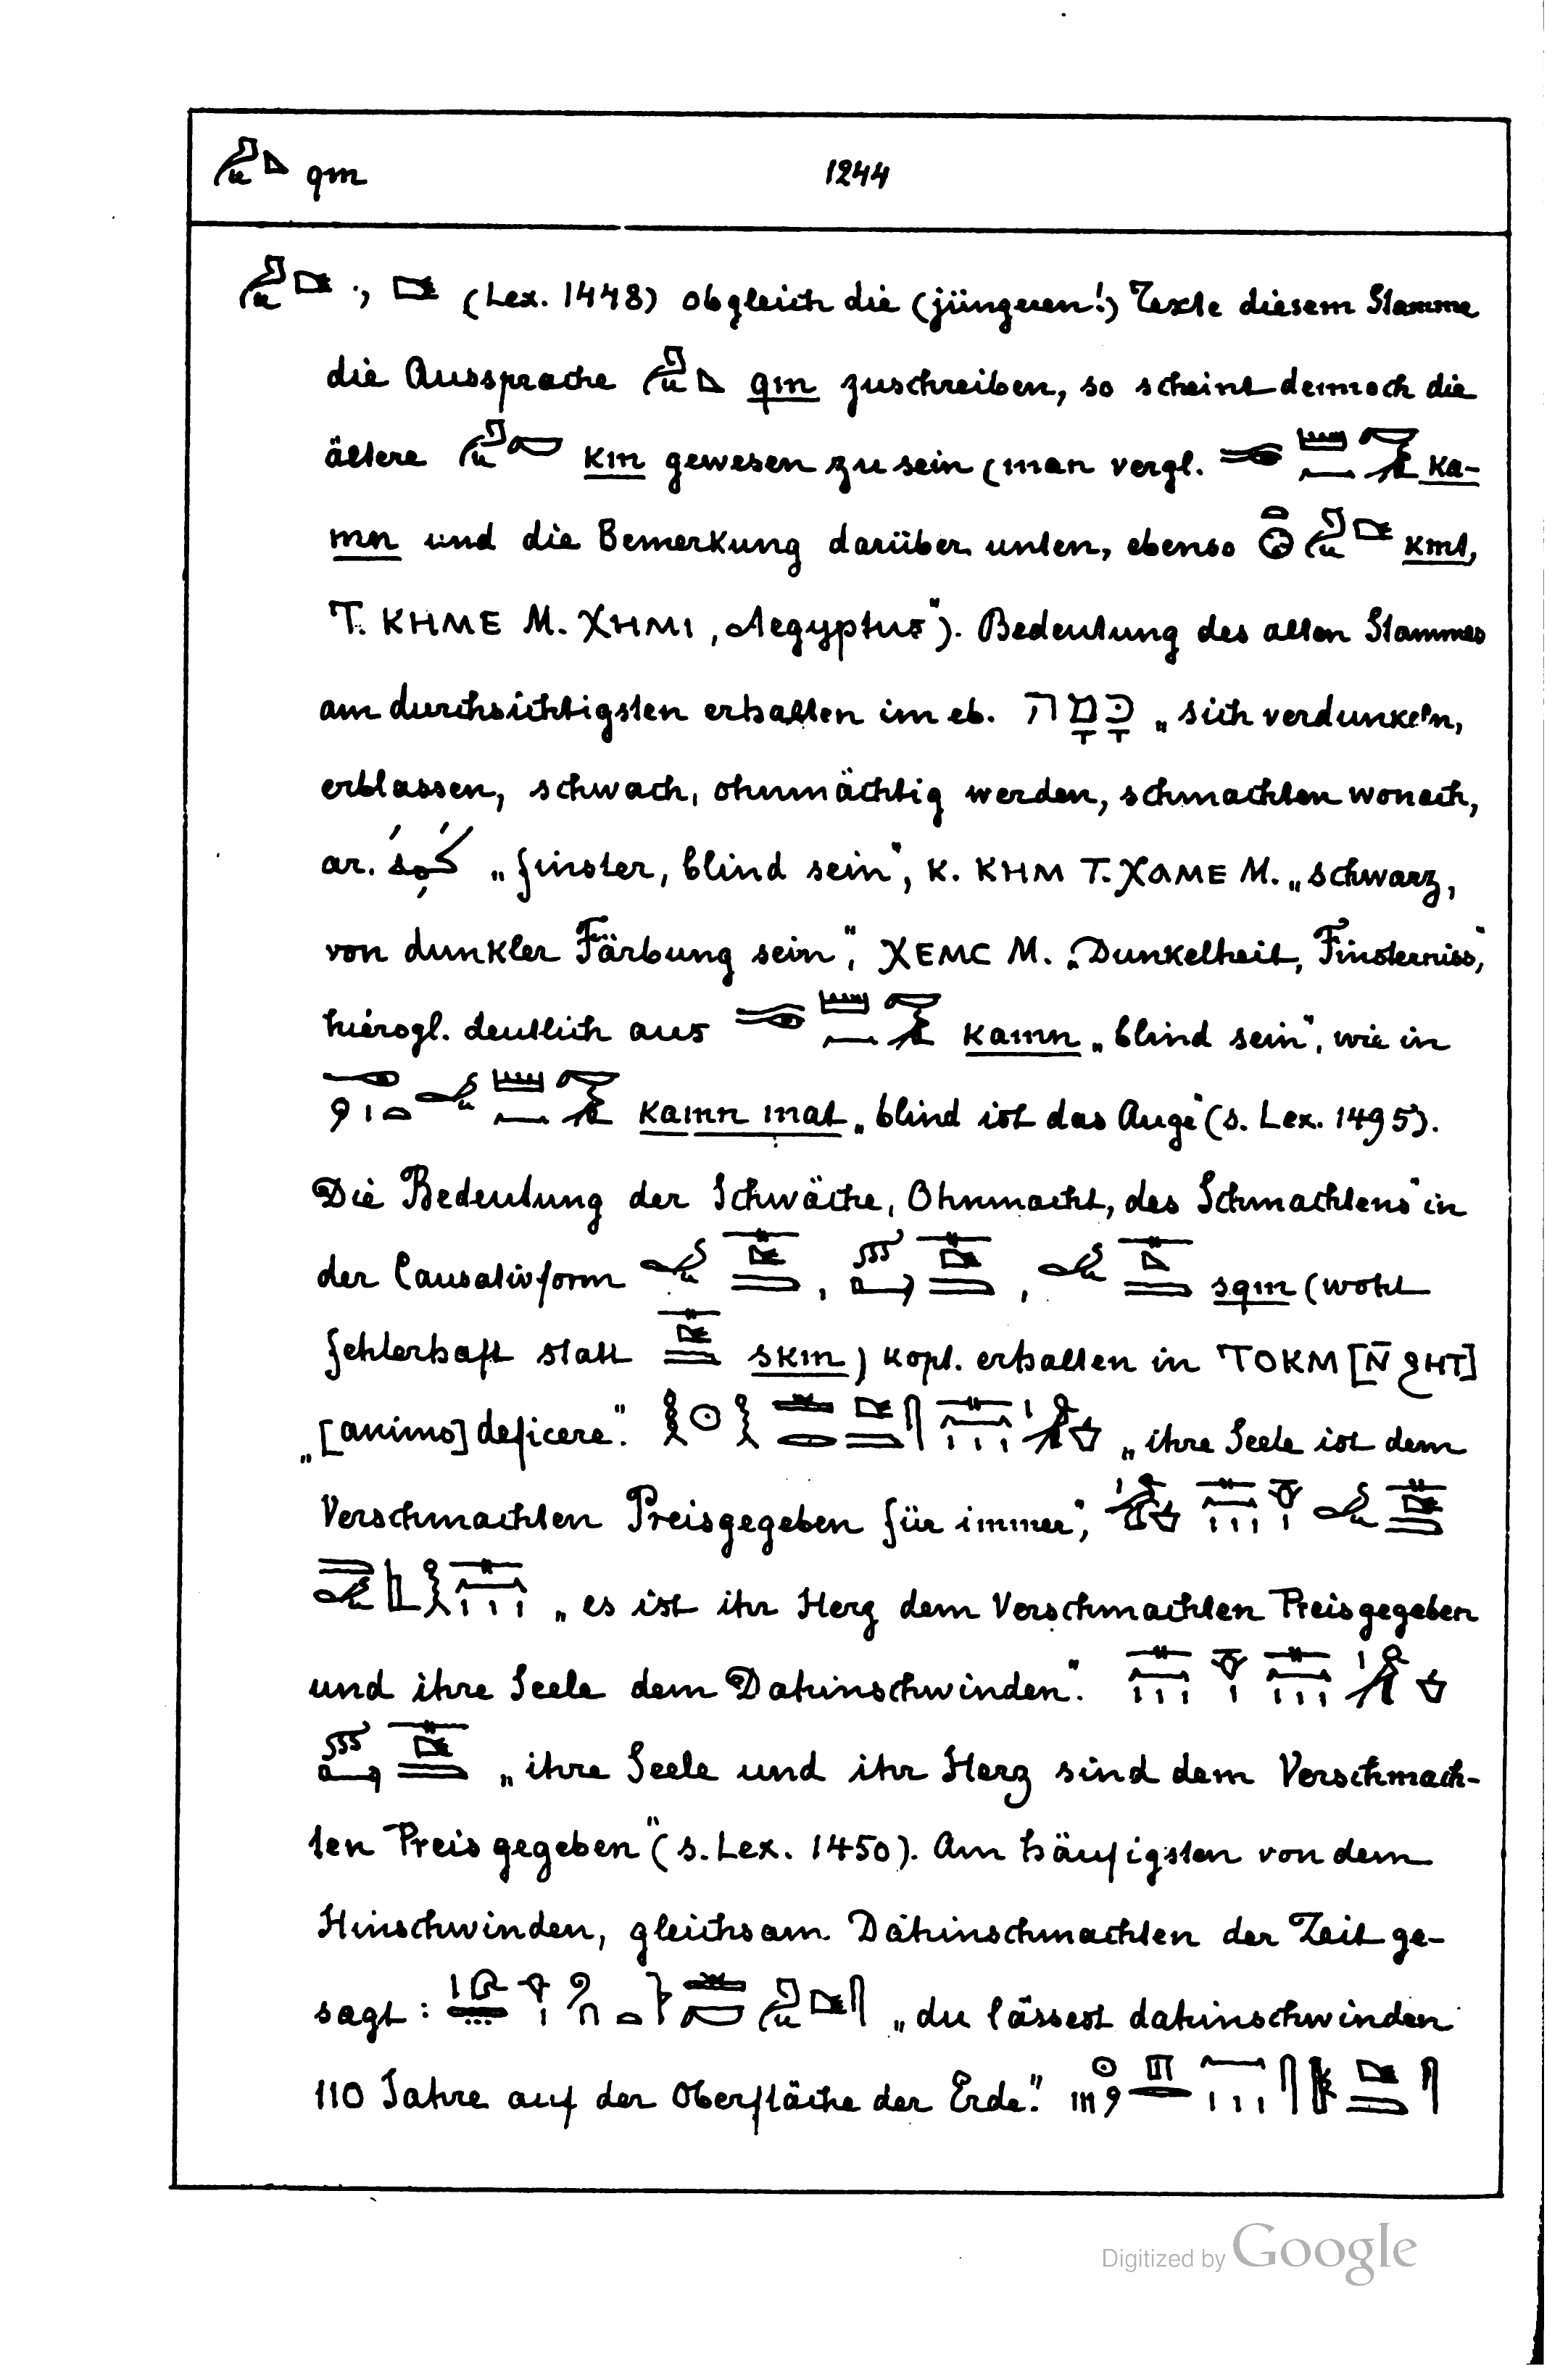 qm 1244
(Lex. 1448) obgleich die (jüngeren!) Texte diesem Stamme
die Aussprache qm zuschreiben, so scheint dennoch die
ältere km gewesen zu sein (man vergl. ka-
mn und die Bemerkung darüber unten, ebenso kmt,
T. ⲔⲎⲘⲈ M. ⲬⲎⲘⲒ „Aegyptus“). Bedeutung des alten Stammes
am durchsichtigsten erhalten im eb. כָּמָה „sich verdunkeln,
erblassen, schwach, ohnmächtig werden, schmachten wonach,
ar. „finster, blind sein“, K. ⲔⲎⲘ T. ⲬⲀⲘⲈ M. „schwarz,
von dunkler Färbung sein“, ⲬⲈⲘⲤ M. „Dunkelheit, Finsterniss“,
hierogl. deutlich aus kamn „blind sein“, wie in
kamn mat „blind ist das Auge“ (s. Lex. 1495).
Die Bedeutung der Schwäche, Ohnmacht, des Schmachtens in
der Causativform , , sqm (wohl
fehlerhaft statt skm) kopt. erhalten in ⲦⲞⲔⲘ [Ⲛ̄ ϨⲎⲦ]
„[animo] deficere“. „ihre Seele ist dem
Verschmachten Preisgegeben für immer“,
„es ist ihr Herz dem Verschmachten Preisgegeben
und ihre Seele dem Dahinschwinden“.
„ihre Seele und ihr Herz sind dem Verschmach-
ten Preis gegeben“ (s. Lex. 1450). Am häufigsten von dem
Hinschwinden, gleichsam Dahinschmachten der Zeit ge-
sagt: „du lässest dahinschwinden
110 Jahre auf der Oberfläche der Erde“.
Digitized by Google